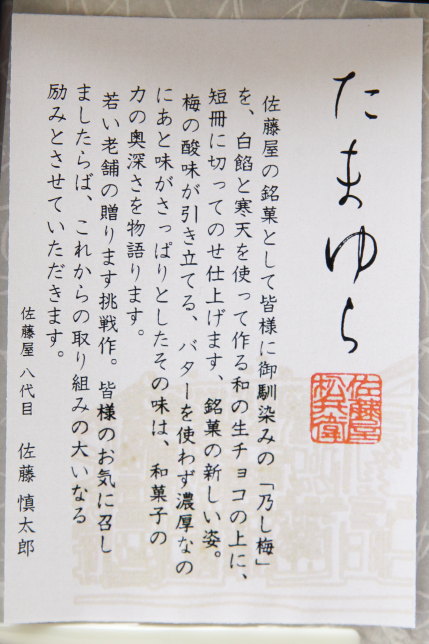 たまゆら
佐藤屋の銘菓として皆様に御馴染みの「乃し梅」
を、白餡と寒天を使って作る和の生チョコの上に、
短冊に切ってのせ仕上げます、銘菓の新しい姿。
梅の酸味が引き立てる、バターを使わず濃厚なの
にあと味がさっぱりとしたその味は、和菓子の
力の奥深さを物語ります。
若い老舗の贈ります挑戦作。皆様のお気に召し
ましたらば、これからの取り組みの大いなる
励みとさせていただきます。
佐藤屋 八代目 佐藤 慎太郎
佐藤屋
松兵衛